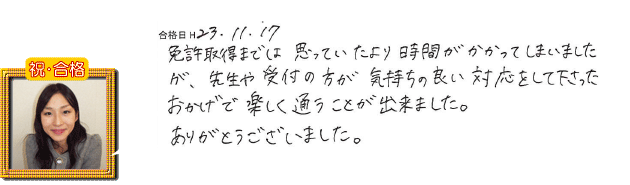 合格日 H23.11.17
免許取得までは 思っていたより 時間がかかってしまいました
が、先生や 受付の方が 気持ちの良い 対応をして下さった
おかげで 楽しく 通うことが 出来ました。
ありがとうございました。
祝・合格